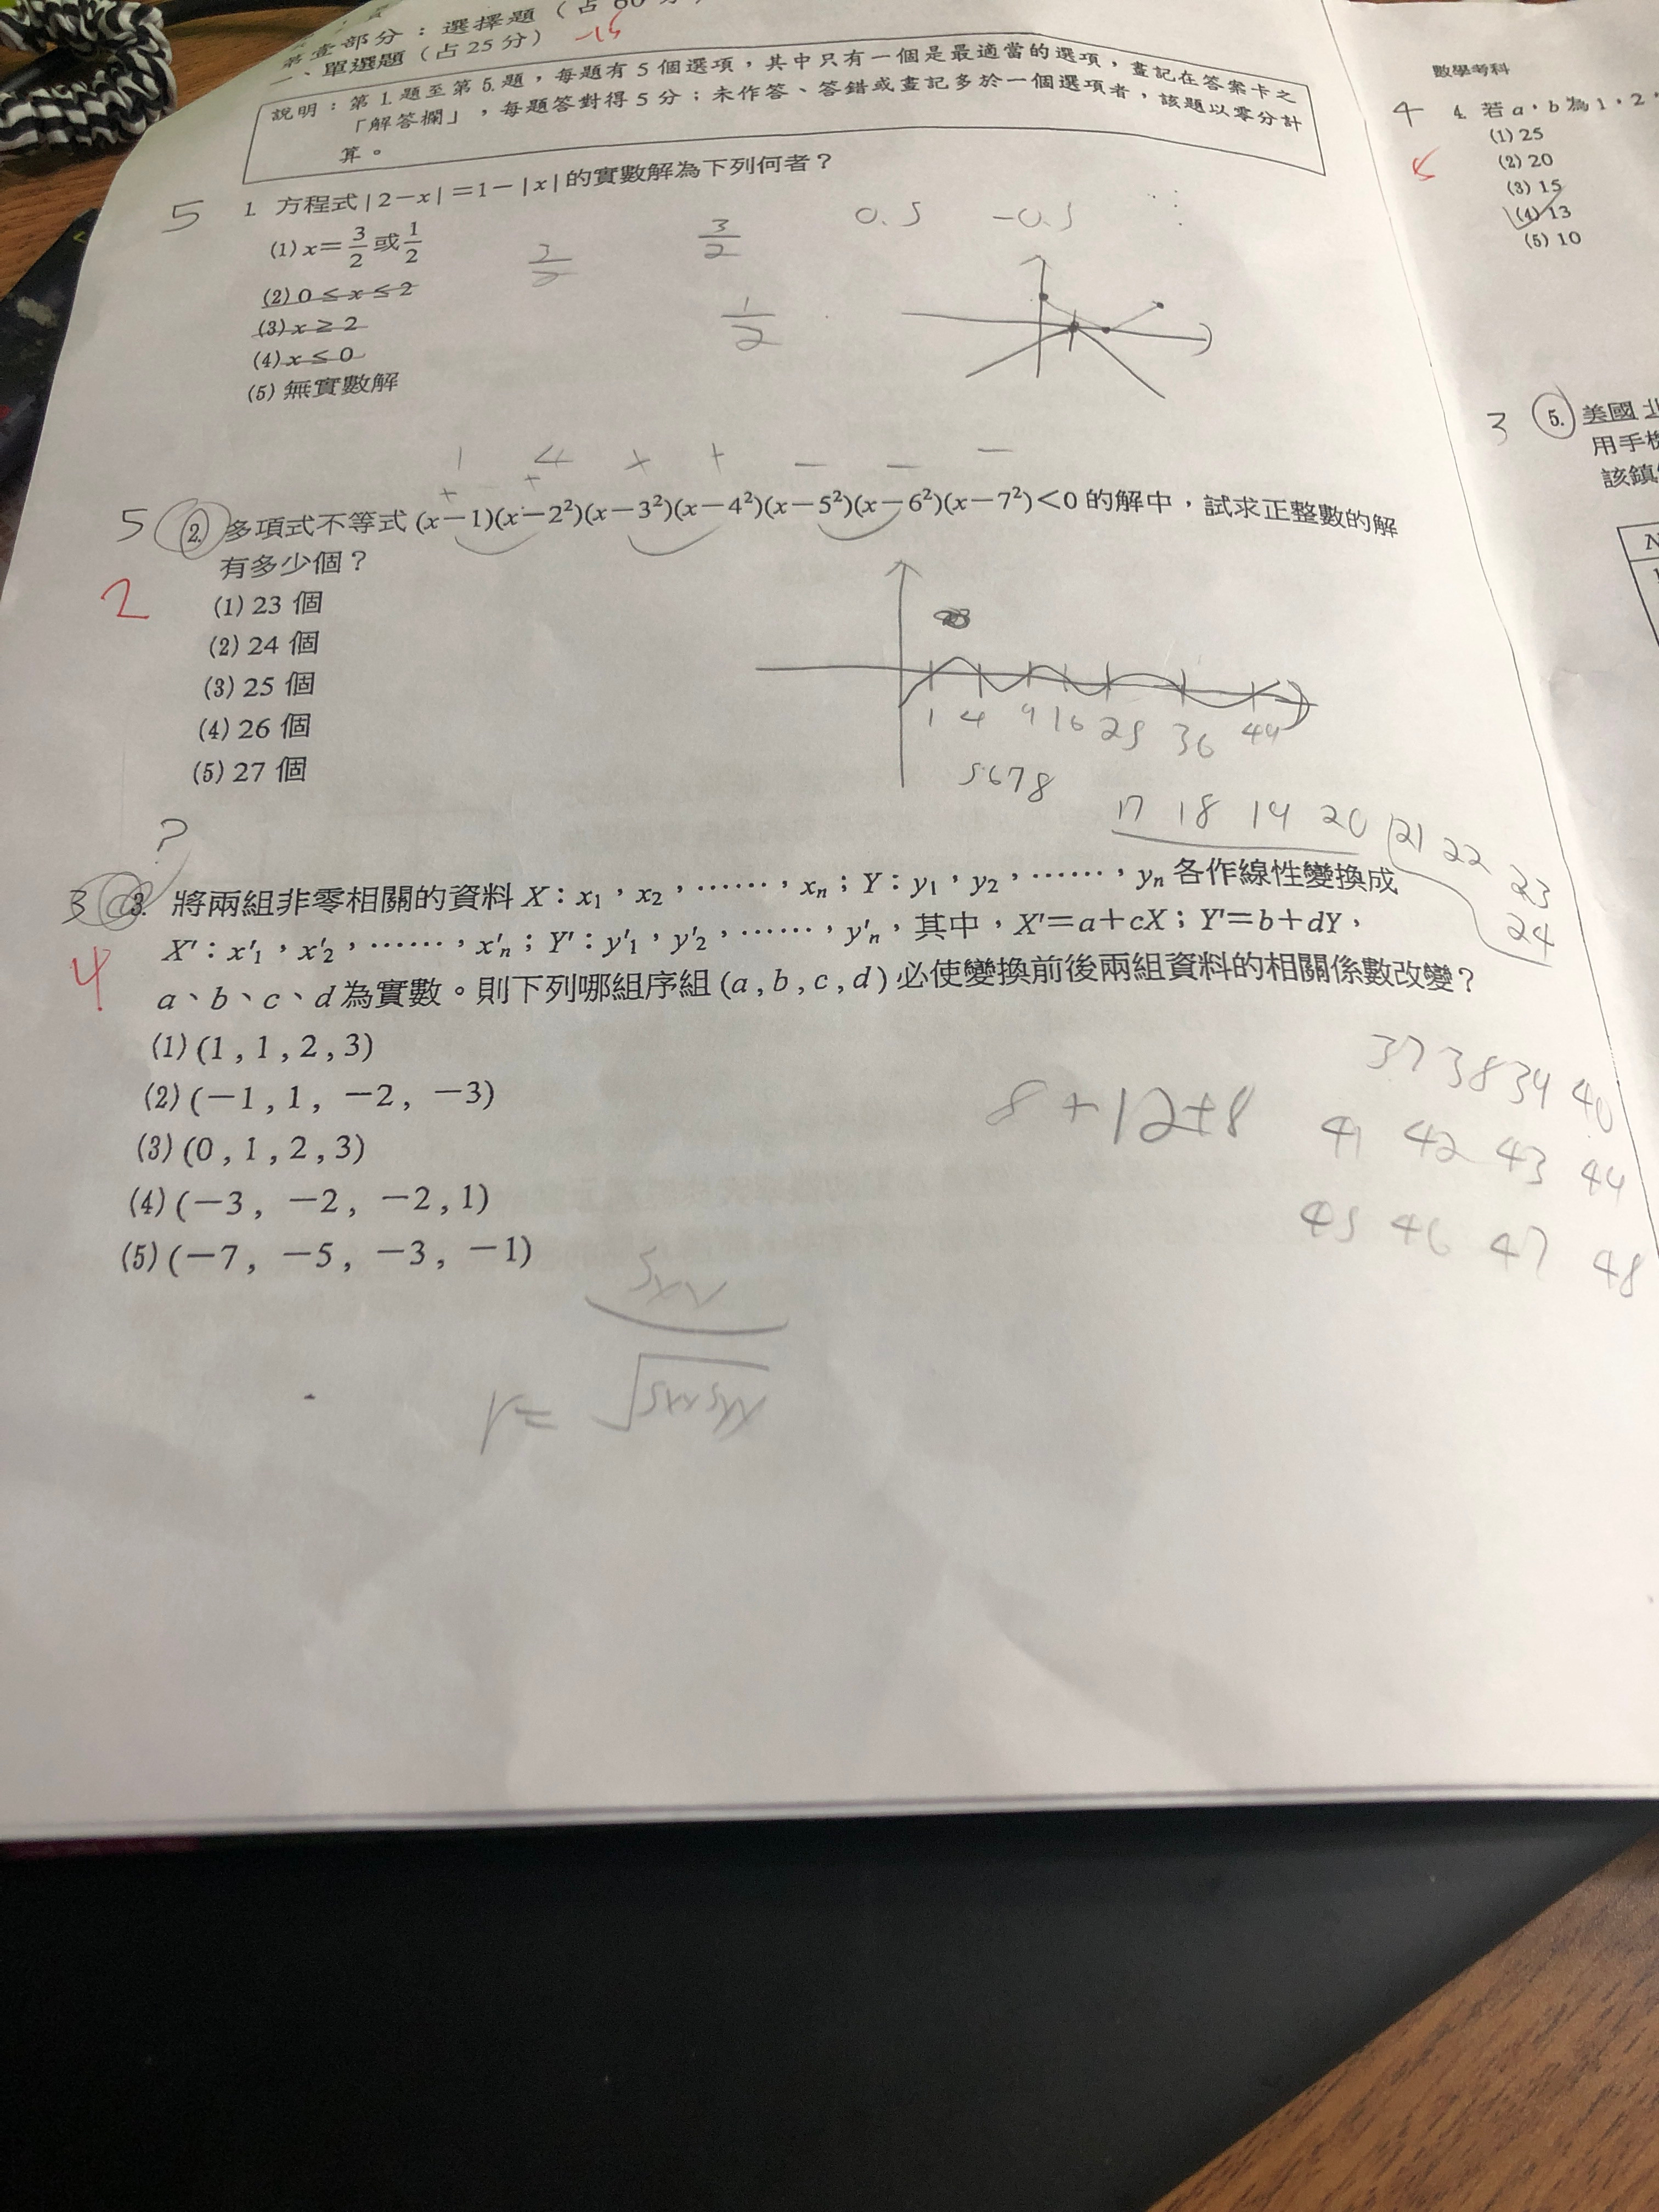 第壹部分：選擇題（占60分）
一、單選題（占25分） -15
說明：第1.題至第5.題，每題有5個選項，其中只有一個是最適當的選項，畫記在答案卡之
「解答欄」，每題答對得5分；未作答、答錯或畫記多於一個選項者，該題以零分計
算。
5 1. 方程式|2－x|＝1－|x|的實數解為下列何者？
(1) x＝3/2或1/2
(2) 0≤x≤2
(3) x≥2
(4) x≤0
(5) 無實數解
3/2
1/2
0.5 -0.5
1 4 + + － － －
+ +
5 2. 多項式不等式(x－1)(x－2²)(x－3²)(x－4²)(x－5²)(x－6²)(x－7²)<0的解中，試求正整數的解
有多少個？
2
(1) 23 個
(2) 24 個
(3) 25 個
(4) 26 個
(5) 27 個
1 4 9 16 25 36 49
5 6 7 8
17 18 19 20 21 22 23
24
?
3 3. 將兩組非零相關的資料X：x₁，x₂，……，xₙ；Y：y₁，y₂，……，yₙ各作線性變換成
X'：x'₁，x'₂，……，x'ₙ；Y'：y'₁，y'₂，……，y'ₙ，其中，X'＝a＋cX；Y'＝b＋dY，
4 a、b、c、d為實數。則下列哪組序組(a , b , c , d)必使變換前後兩組資料的相關係數改變？
(1) (1 , 1 , 2 , 3)
(2) (－1 , 1 , －2 , －3)
(3) (0 , 1 , 2 , 3)
(4) (－3 , －2 , －2 , 1)
(5) (－7 , －5 , －3 , －1)
8+12+8
37 38 39 40
41 42 43 44
45 46 47 48
Sxy
r= √SxxSyy
數學考科
4 4. 若a，b為1，2，
(1) 25
(2) 20
(3) 15
(4) 13
(5) 10
5
3 5. 美國北
用手機
該鎮